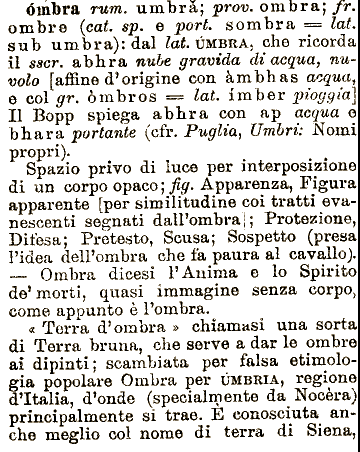 ómbra rum. umbră; prov. ombra; fr.
ombre (cat. sp. e port. sombra = lat.
sub umbra): dal lat. ÚMBRA, che ricorda
il sscr. abhra nube gravida di acqua, nu-
volo [affine d'origine con àmbhas acqua,
e col gr. òmbros = lat. imber pioggia]
Il Bopp spiega abhra con ap acqua e
bhara portante (cfr. Puglia, Umbri: Nomi
propri).
Spazio privo di luce per interposizione
di un corpo opaco; fig. Apparenza, Figura
apparente [per similitudine coi tratti eva-
nescenti segnati dall'ombra]; Protezione,
Difesa; Pretesto, Scusa; Sospetto (presa
l'idea dell'ombra che fa paura al cavallo).
— Ombra dicesi l'Anima e lo Spirito
de' morti, quasi immagine senza corpo,
come appunto è l'ombra.
« Terra d'ombra » chiamasi una sorta
di Terra bruna, che serve a dar le ombre
ai dipinti; scambiata per falsa etimolo-
gia popolare Ombra per ÚMBRIA, regione
d'Italia, d'onde (specialmente da Nocèra)
principalmente si trae. È conosciuta an-
che meglio col nome di terra di Siena,